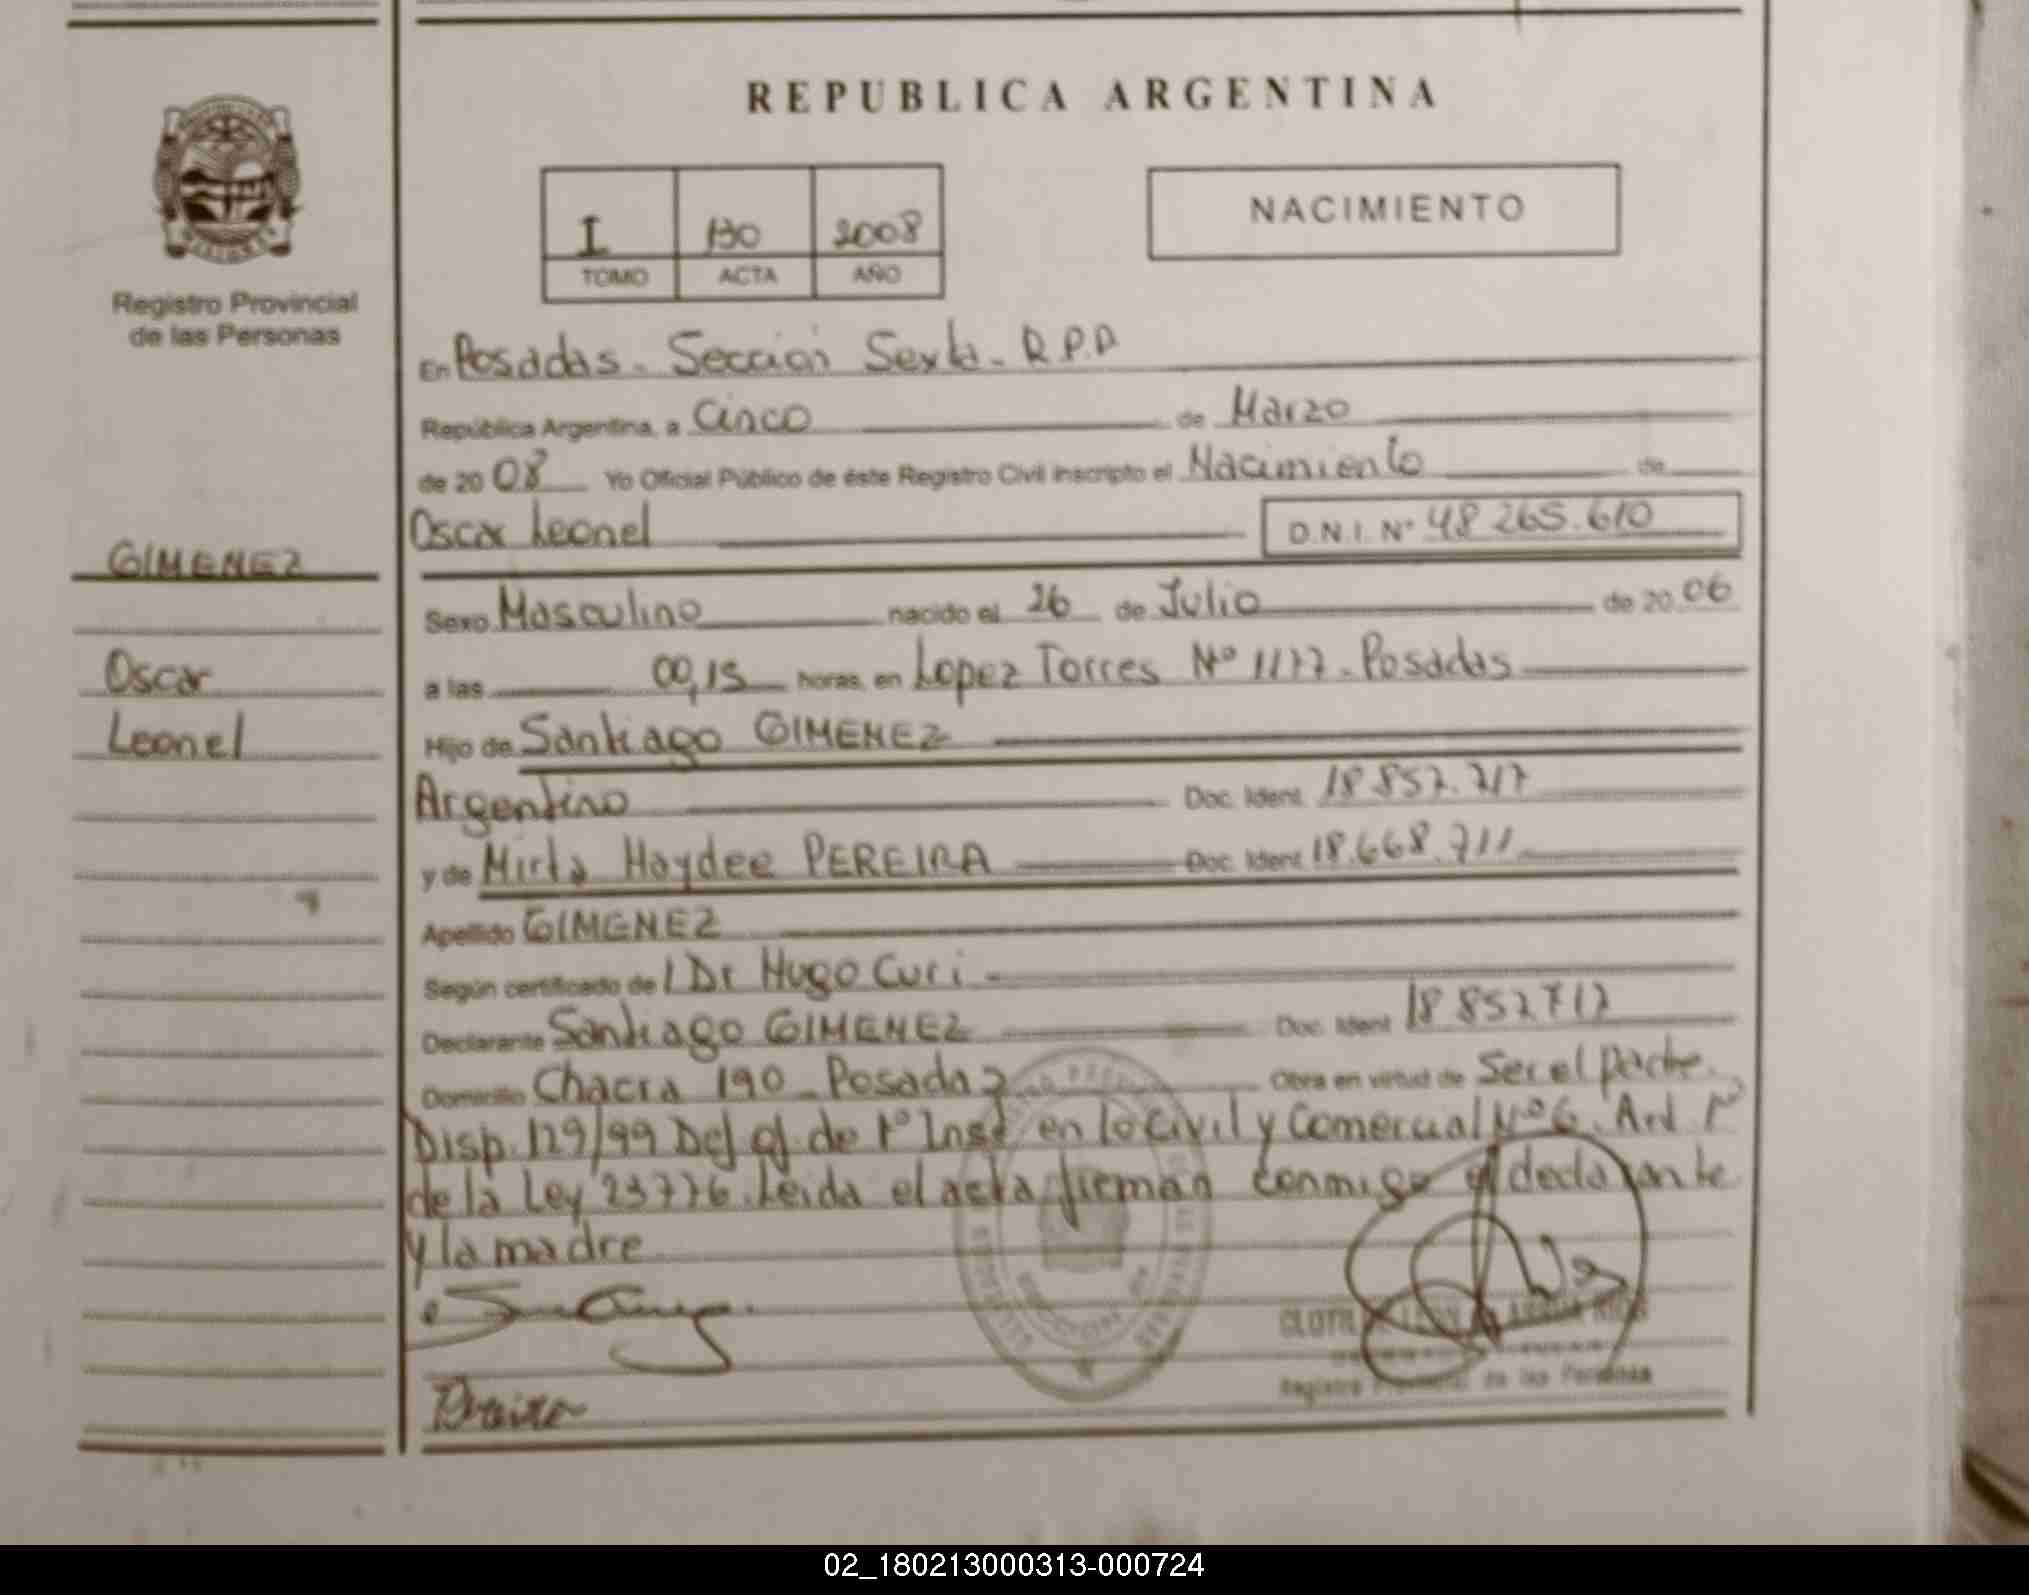 REPUBLICA ARGENTINA
NACIMIENTO
I 130 2008
TOMO ACTA AÑO
Registro Provincial
de las Personas
En Posadas - Sección Sexta - R.P.P
República Argentina, a Cinco de Marzo
de 2008 Yo Oficial Público de éste Registro Civil inscripto el Nacimiento de
Oscar Leonel D.N.I. Nº 48 265.610
GIMENEZ
Oscar
Leonel
Sexo Masculino nacido el 26 de Julio de 2006
a las 00,15 horas, en Lopez Torres Nº 1177 - Posadas
Hijo de Santiago GIMENEZ
Argentino Doc. Ident. 18.857.717
y de Mirta Haydee PEREIRA Doc. Ident. 18.668.711
Apellido GIMENEZ
Según certificado de l Dr Hugo Curi -
Declarante Santiago GIMENEZ Doc. Ident. 18 857.717
Domicilio Chacra 190 - Posadas Obra en virtud de Ser el padre.
Disp. 129/99 Del of. de 1º Inst en lo Civil y Comercial Nº 6. Art. 1º
de la Ley 23776. Leida el acta firman conmigo el declarante
y la madre
Registro Provincial de las Personas
02_180213000313-000724